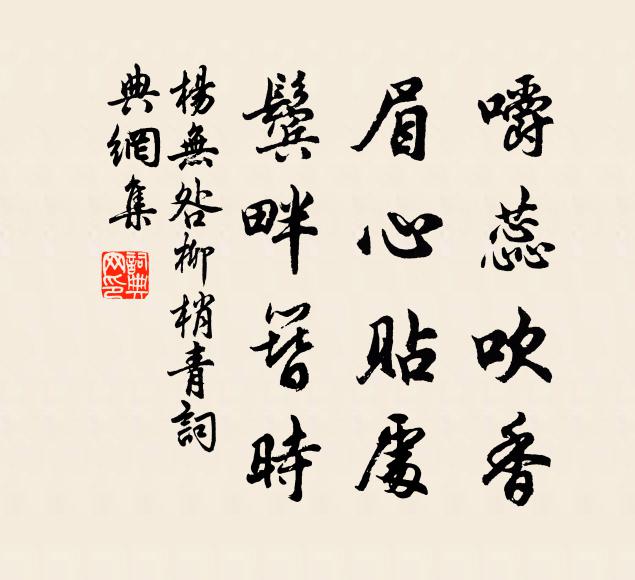 嚼蕊吹香
眉心貼處
鬢畔簪時
楊無咎柳梢青詞
典網集
詞典網印